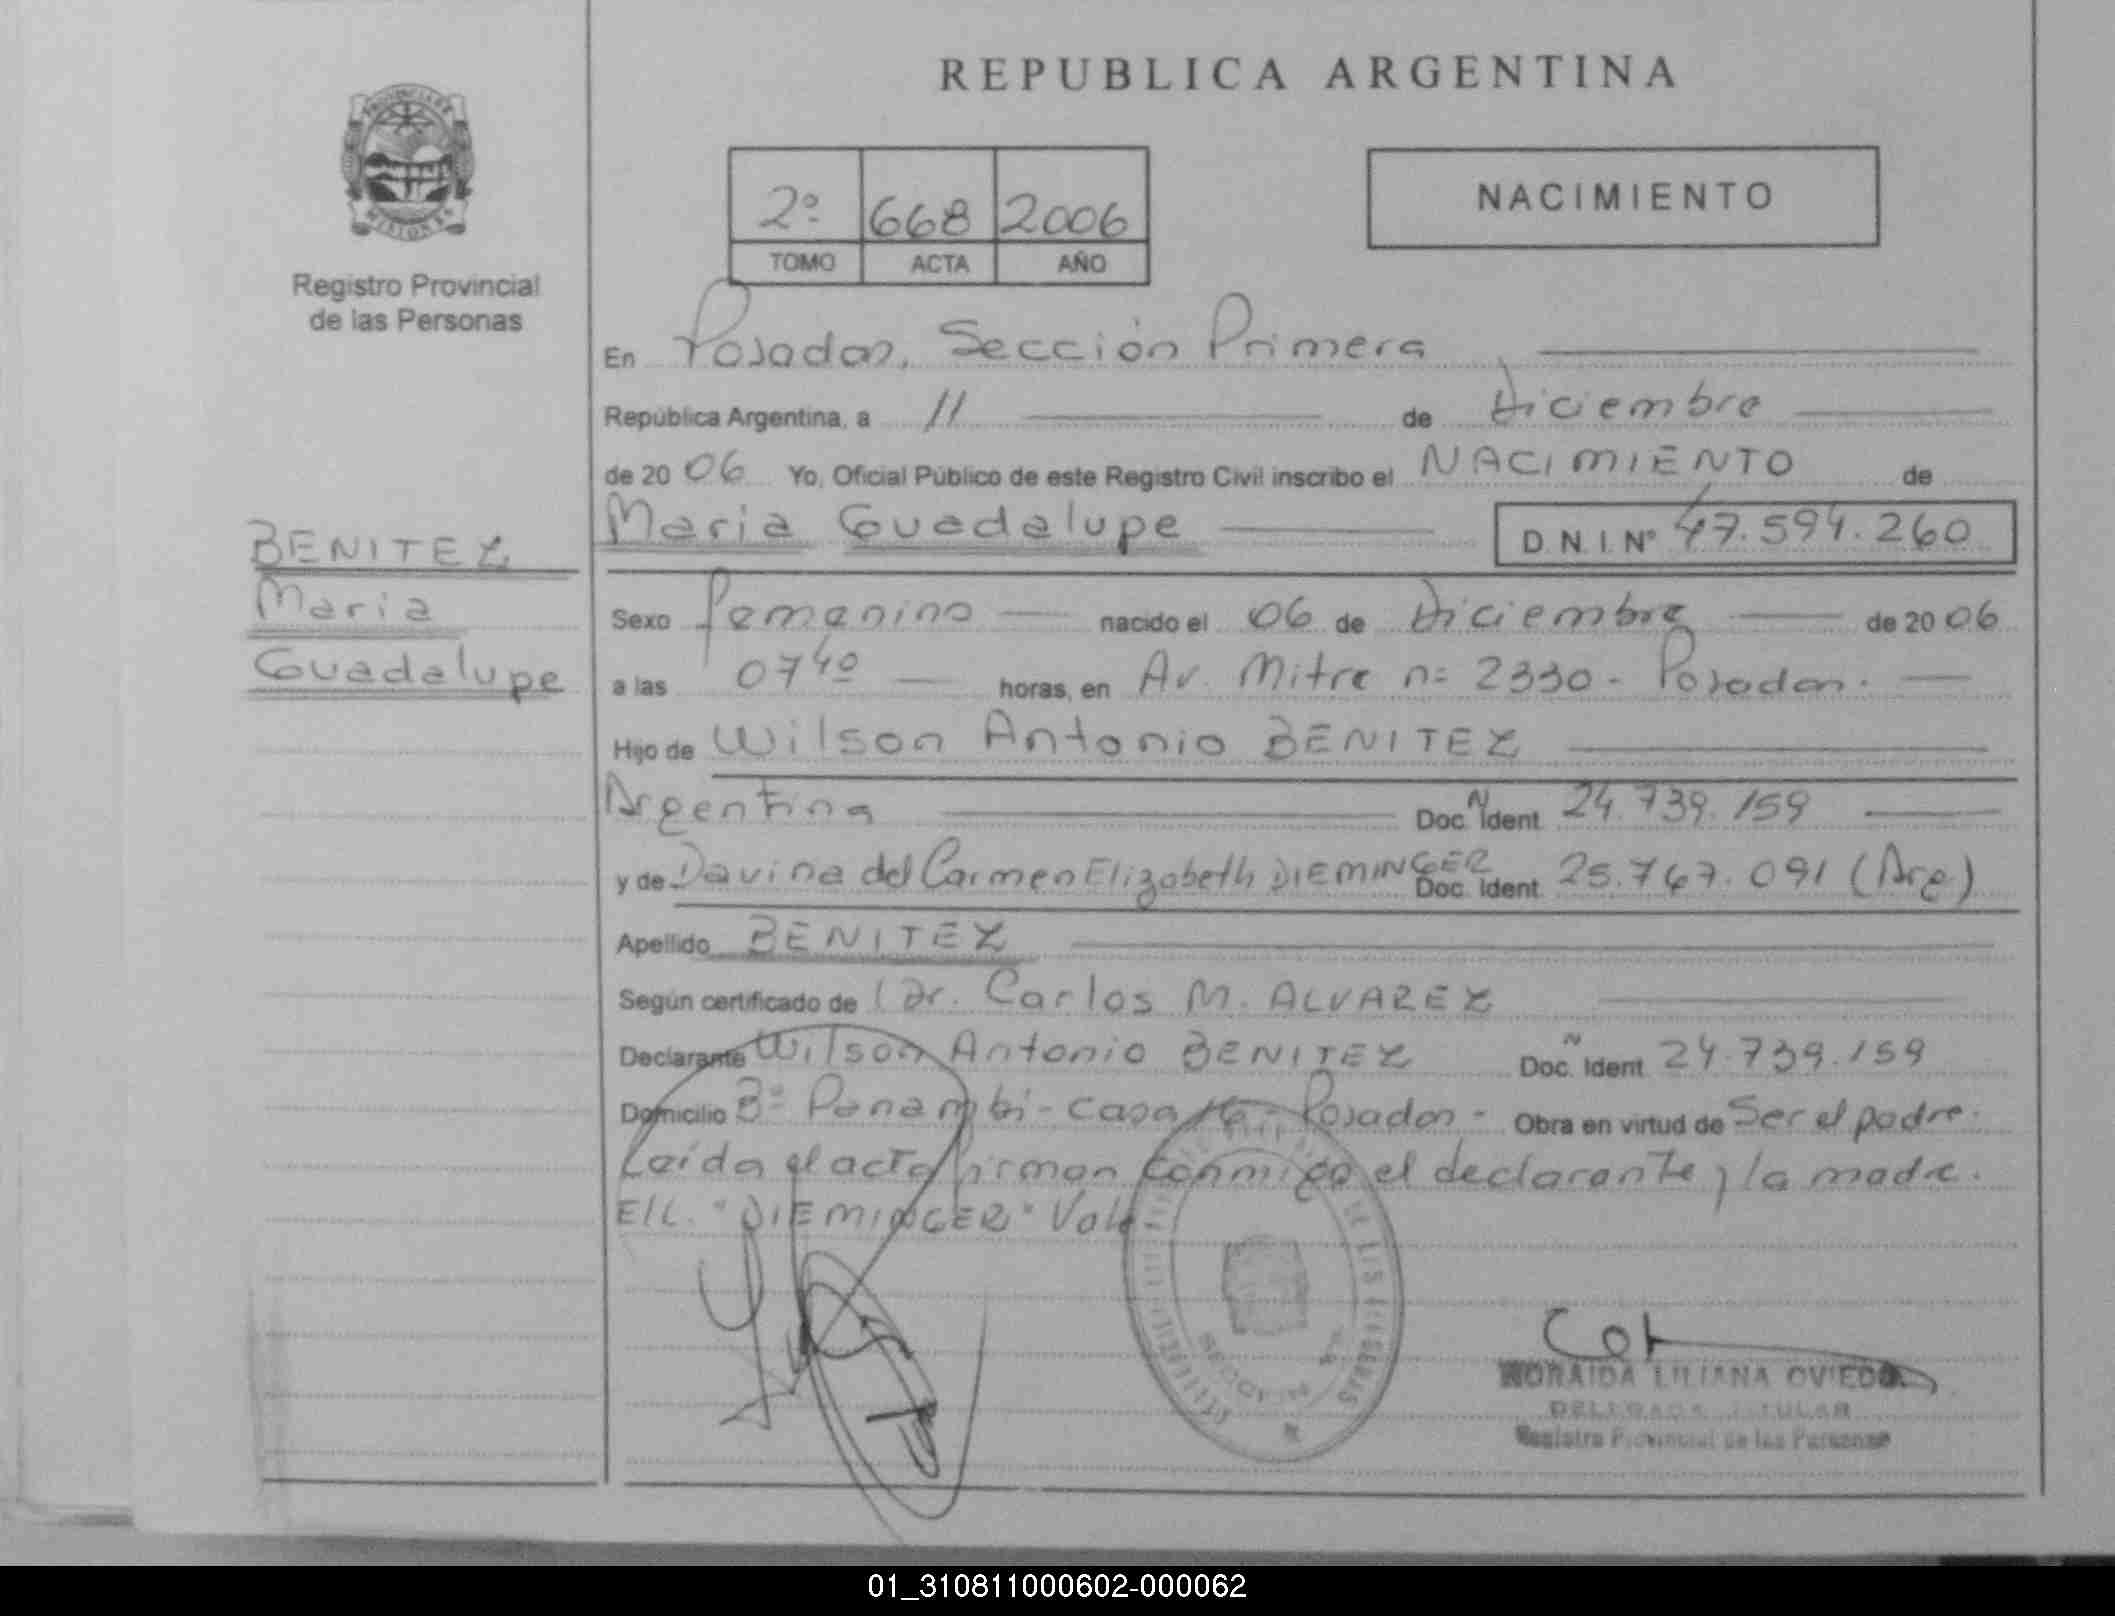 REPUBLICA ARGENTINA
PROVINCIA DE
MISIONES
Registro Provincial
de las Personas
2º 668 2006
TOMO ACTA AÑO
NACIMIENTO
En Posadas, Sección Primera
República Argentina, a 11 de Diciembre
de 2006 Yo, Oficial Público de este Registro Civil inscribo el NACIMIENTO de
Maria Guadalupe D.N.I. Nº 47.594.260
BENITEZ
Maria
Guadalupe
Sexo femenino nacido el 06 de Diciembre de 2006
a las 07 40 horas, en Av. Mitre nº 2330 - Posadas.
Hijo de Wilson Antonio BENITEZ
Argentina Doc. Ident N 24.739.159
y de Davina del Carmen Elizabeth DIEMINGER Doc. Ident. 25.767.091 (Arg)
Apellido BENITEZ
Según certificado de Dr. Carlos M. ALVAREZ
Declarante Wilson Antonio BENITEZ Doc. Ident N 24.739.159
Domicilio Bº Panambi - casa 16 - Posadas - Obra en virtud de Ser el padre.
Leída el acta firman conmigo el declarante y la madre.
E/L. "DIEMINGER" Vale.
LILIANA OVIEDO
DELEGADA TITULAR
Registro Provincial de las Personas
01_310811000602-000062